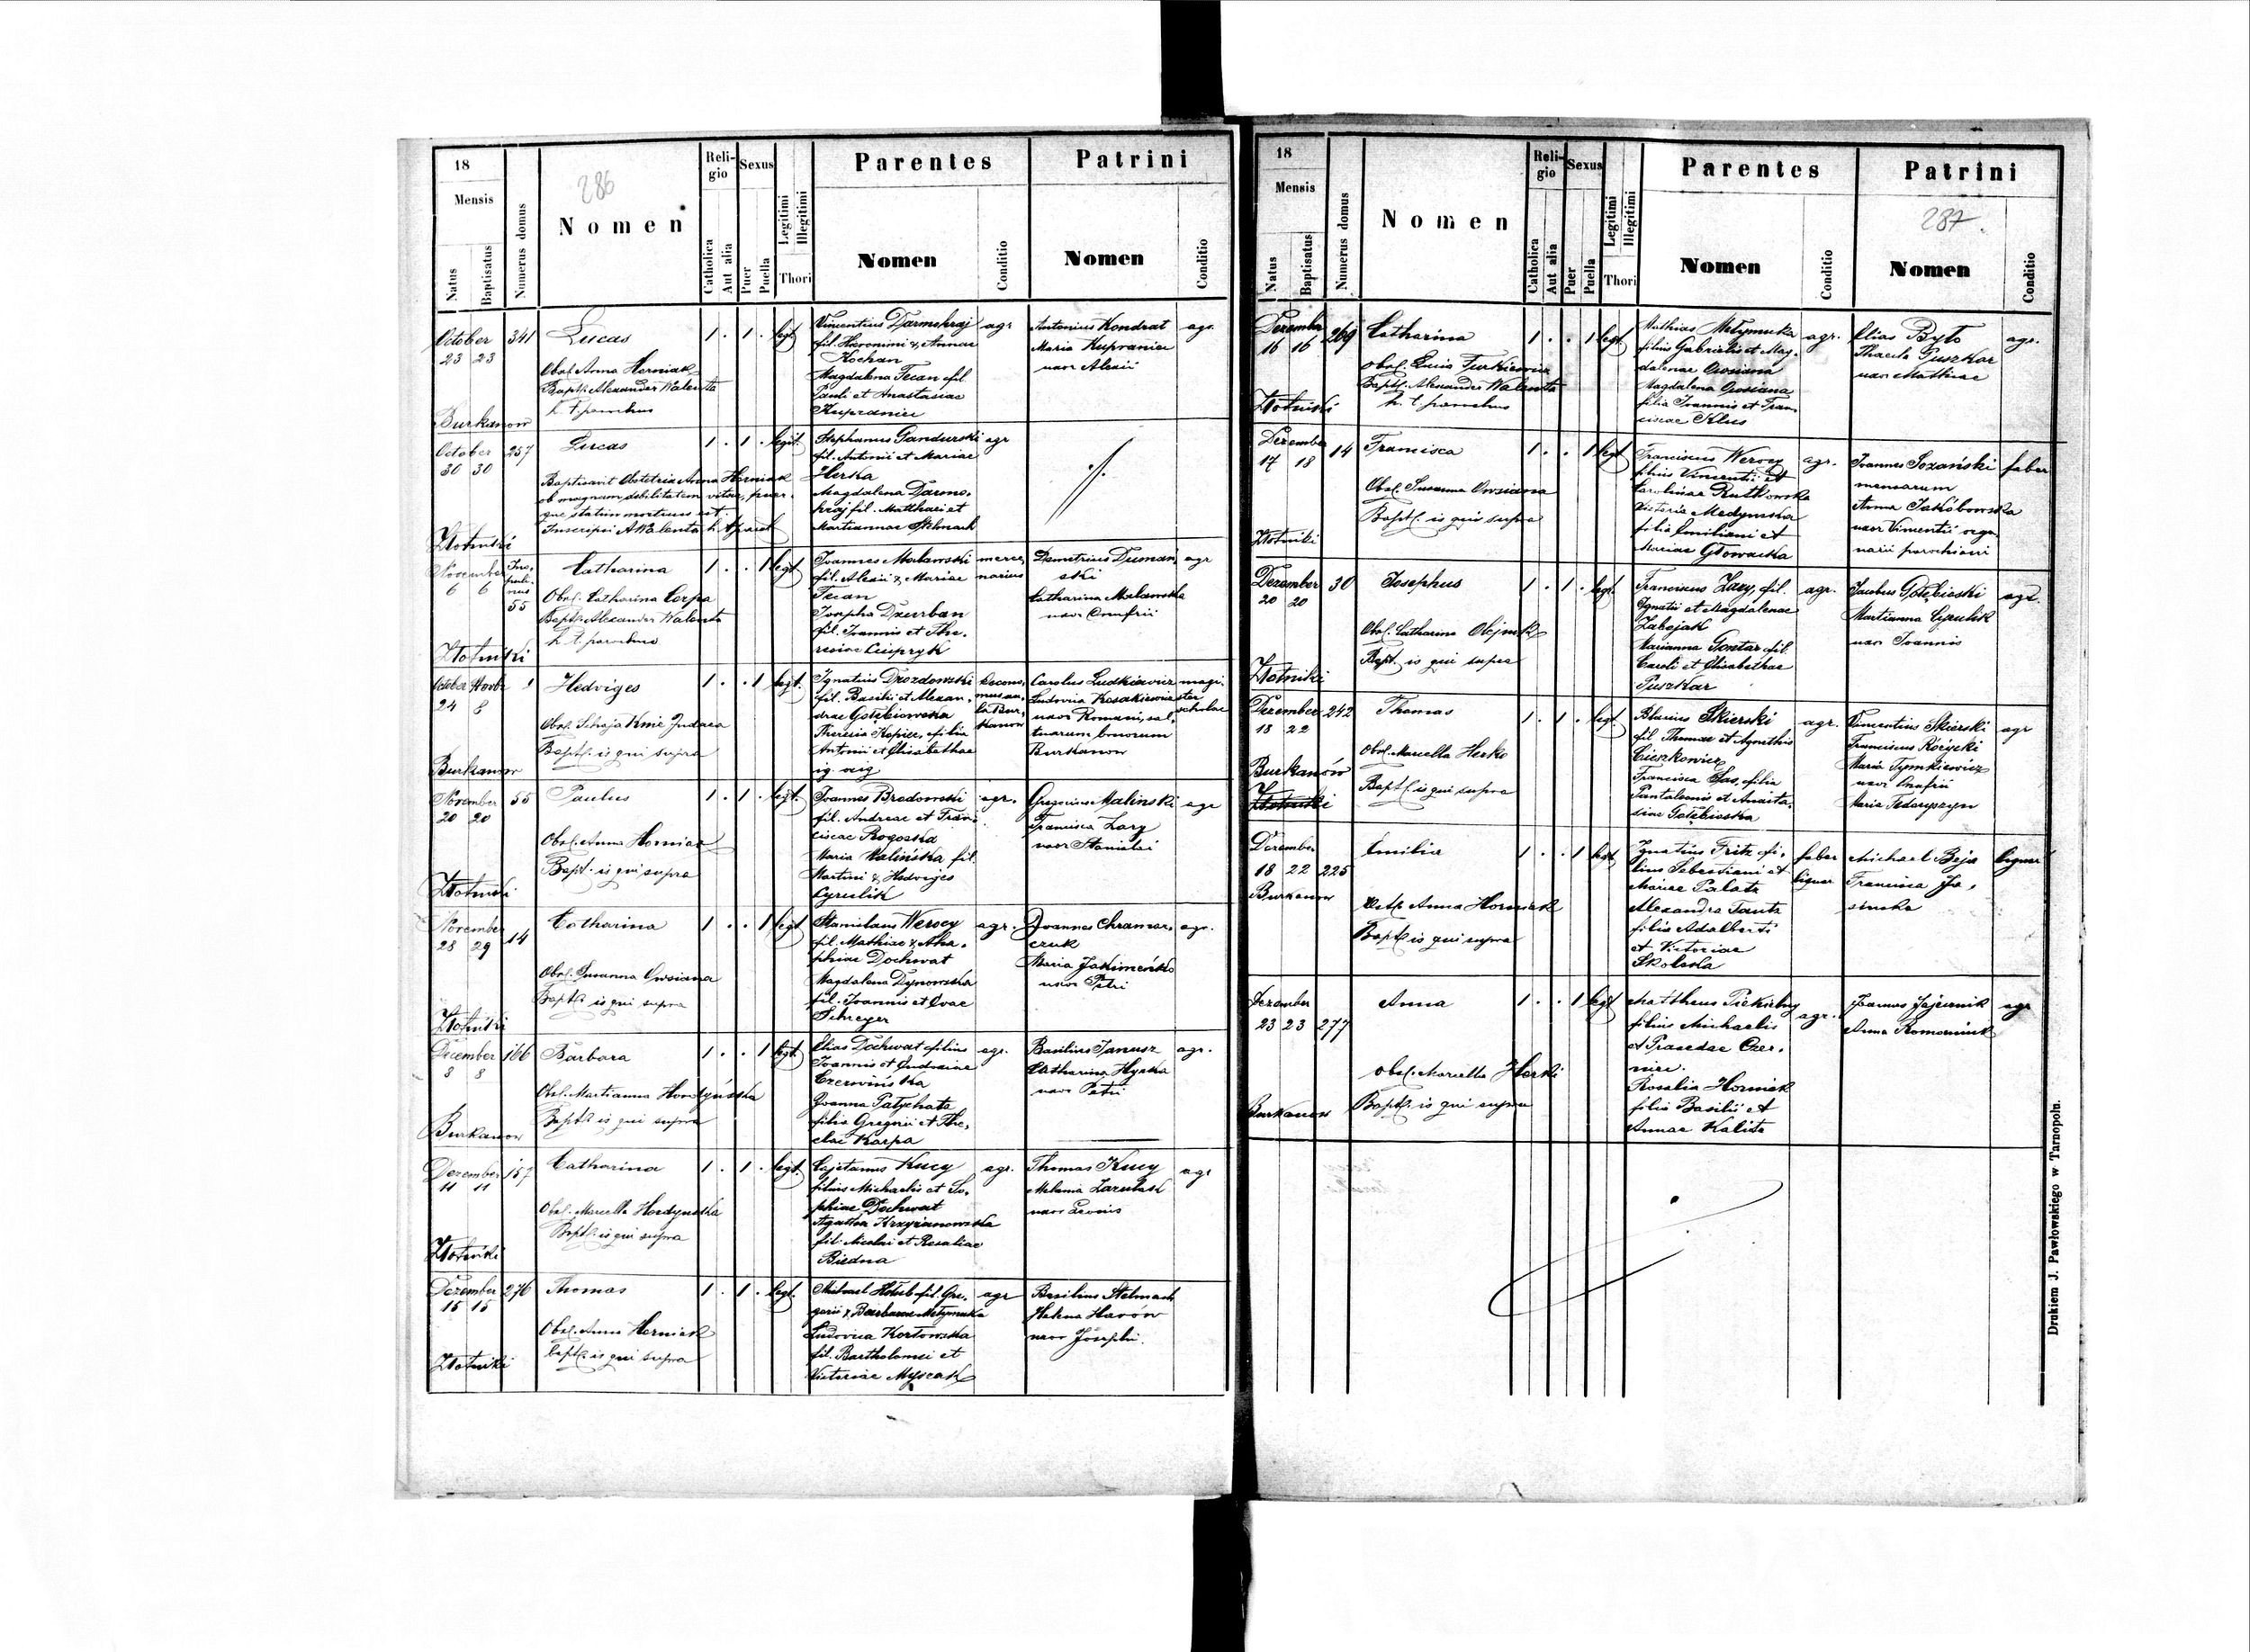 18
Mensis
Natus
Baptisatus
Numerus domus
286
Nomen
Religio
Catholica
Aut alia
Sexus
Puer
Puella
Legitimi
Illegitimi
Thori
Parentes
Nomen
Conditio
Patrini
Nomen
Conditio
October 341 Lucas 1 . 1 . legt.
23 23
Obst. Anna Horniak
Bapt. Alexander Walenta
h. t. parochus
Burkanow
Vincentius Darmohraj agr
fil. Hieronimi & Annae
Kochan
Magdalena Tecan fil.
Pauli et Anastasiae
Kupraniec
Antonius Kondrat agr.
Maria Kupraniec
uxor Alexii
October 257 Lucas 1 . 1 . legit.
30 30
Baptisavit Obstetrix Anna Horniak
ob magnam debilitatem vitae, puer
que statim mortuus est.
Inscripsi A Walenta h. t. paroch
Złotniki
Stephanus Gandurski agr
fil. Antonii et Mariae
Herka
Magdalena Darmo-
hraj fil. Matthaei et
Martiannae Stelmach
November 55 Catharina 1 . . 1 legt
6 6
Obst. Catharina Corpa
Bapt. Alexander Walenta
h. t. parochus
Złotniki
Joannes Malawski merce
fil. Alexii & Mariae narius
Tecan
Josepha Dzurban
fil. Joannis et The-
resiae Cupryk
Demetrius Duman agr
ski
Catharina Malawska
uxor Onufrii
October Novbr 1 Hedviges 1 . . 1 legt.
24 8
Obst. Judaea
Bapt. is qui supra
Burkanow
Ignatius Drozdowski
fil. Basilii et Alexan-
drae Gołębiowska
Theresia Kopiec, filia
Antonii et Elisabethae
Carolus Ludkiewicz magi
Ludovica Kosakiewicz ster
uxor Romani scholae
bonorum
Burkanow
November 55 Paulus 1 . 1 . legt.
20 20
Obst. Anna Horniak
Bapt. is qui supra
Złotniki
Joannes Brodowski agr.
fil. Andreae et Fran-
ciscae Rogoska
Maria Malińska fil.
Martini & Hedviges
Cyrulik
Gregorius Malinski agr
Francisca Zary
uxor Stanislai
November 14 Catharina 1 . . 1 legt
28 29
Obst. Susanna Owsiana
Bapt. is qui supra
Złotniki
Stanislaus Werocy agr.
fil. Mathiae & Aga-
phiae Dochwat
Magdalena Dynowska
fil. Joannis et Evae
Joannes Chramar- agr.
czuk
Maria Jakimeńko
uxor Petri
December 166 Barbara 1 . . 1 legt.
8 8
Obst. Martianna Hordyńska
Bapt. is qui supra
Burkanow
Elias Dochwat filius agr.
Joannis et
Czerwińska
Joanna Patychata
filia Gregorii et The-
clae Karpa
Basilius Janusz agr.
Catharina
uxor Petri
Dezember 157 Catharina 1 . 1 . legt.
11 11
Obst. Marcella Hordynska
Bapt. is qui supra
Złotniki
Cajetanus Kucy agr.
filius Michaelis et So-
phiae Dochwat
Agatha Krzyżanowska
fil. Nicolai et Rosaliae
Biedna
Thomas Kucy agr
Melania
uxor Leonis
Dezember 276 Thomas 1 . 1 . legt.
15 15
Obst. Anna Horniak
bapt. is qui supra
Złotniki
Michael Hołub fil. Gre- agr
gorii & Barbarae Metymuka
Ludovica Kortowska
fil. Bartholomei et
Victoriae Myszak
Basilius Stelmach
Helena Havów
uxor Josephi
18
Mensis
Natus
Baptisatus
Numerus domus
Nomen
Religio
Catholica
Aut alia
Sexus
Puer
Puella
Legitimi
Illegitimi
Thori
Parentes
Nomen
Conditio
Patrini
287.
Nomen
Conditio
Dezember 269 Catharina 1 . . 1 legt
16 16
Obst. Lucia Turkiewicz
Bapt. Alexander Walenta
h. t. parochus
Złotniki
Mathias Metymuka agr.
filius Gabrielis et Mag-
dalenae Owsiana
Magdalena Owsiana
filia Joannis et Fran-
ciscae Klus
Elias Byto agr.
Thecla Puszkar
uxor Mathiae
Dezember 14 Francisca 1 . . 1 legt
17 18
Obst. Susanna Owsiana
Bapt. is qui supra
Złotniki
Franciscus Werocy agr.
filius Vincentii et
Carolinae Rutkowska
Victoria Medynska
filia Emiliani et
Mariae Głowacka
Joannes Sozański faber
mensarum
Anna Jakóbowska
uxor Vincentii orga
narii parochiani
Dezember 30 Josephus 1 . 1 . legt
20 20
Obst. Catharina Olejnik
Bapt. is qui supra
Złotniki
Franciscus Zary, fil. agr.
Ignatii et Magdalenae
Zabojak
Marianna Gontar fil.
Caroli et Elisabethae
Puszkar
Jacobus Gołębioski agr.
Martianna Cyrulik
uxor Joannis
Dezember 242 Thomas 1 . 1 . legt
18 22
Obst. Marcella Herko
Bapt. is qui supra
Burkanów
Złotniki
Blasius Skierski agr.
fil Thomae et Agnethis
Ciuszkowicz
Francisca Sus, filia
Pantaleonis et Anasta-
siae Gołębioska
Vincentius Skierski agr
Franciscus Różycki
Maria Tymkiewicz
uxor Onufrii
Maria Fedoryszyn
Dezember Emilia 1 . . 1 legt
18 22 225
Burkanow
Obst. Anna Horniak
Bapt. is qui supra
Ignatius Fritz fi- faber
lius Sebastiani et lignar
Mariae Palatz
Alexandra Tautz
filia Adalberti
et Victoriae
Skolska
Michael Beja lignar
Francisca Ja-
sinska
Dezember Anna 1 . . 1 legt
23 23 277
Obst. Marcella Herki
Burkanow Bapt. is qui supra
Mattheus Piekielny agr.
filius Michaelis
et Praxedae Czer-
niec.
Rosalia Horniak
filia Basilii et
Annae Kalista
Joannes Jajecznik agr
Anna Romaniuk
Drukiem J. Pawłowskiego w Tarnopolu.